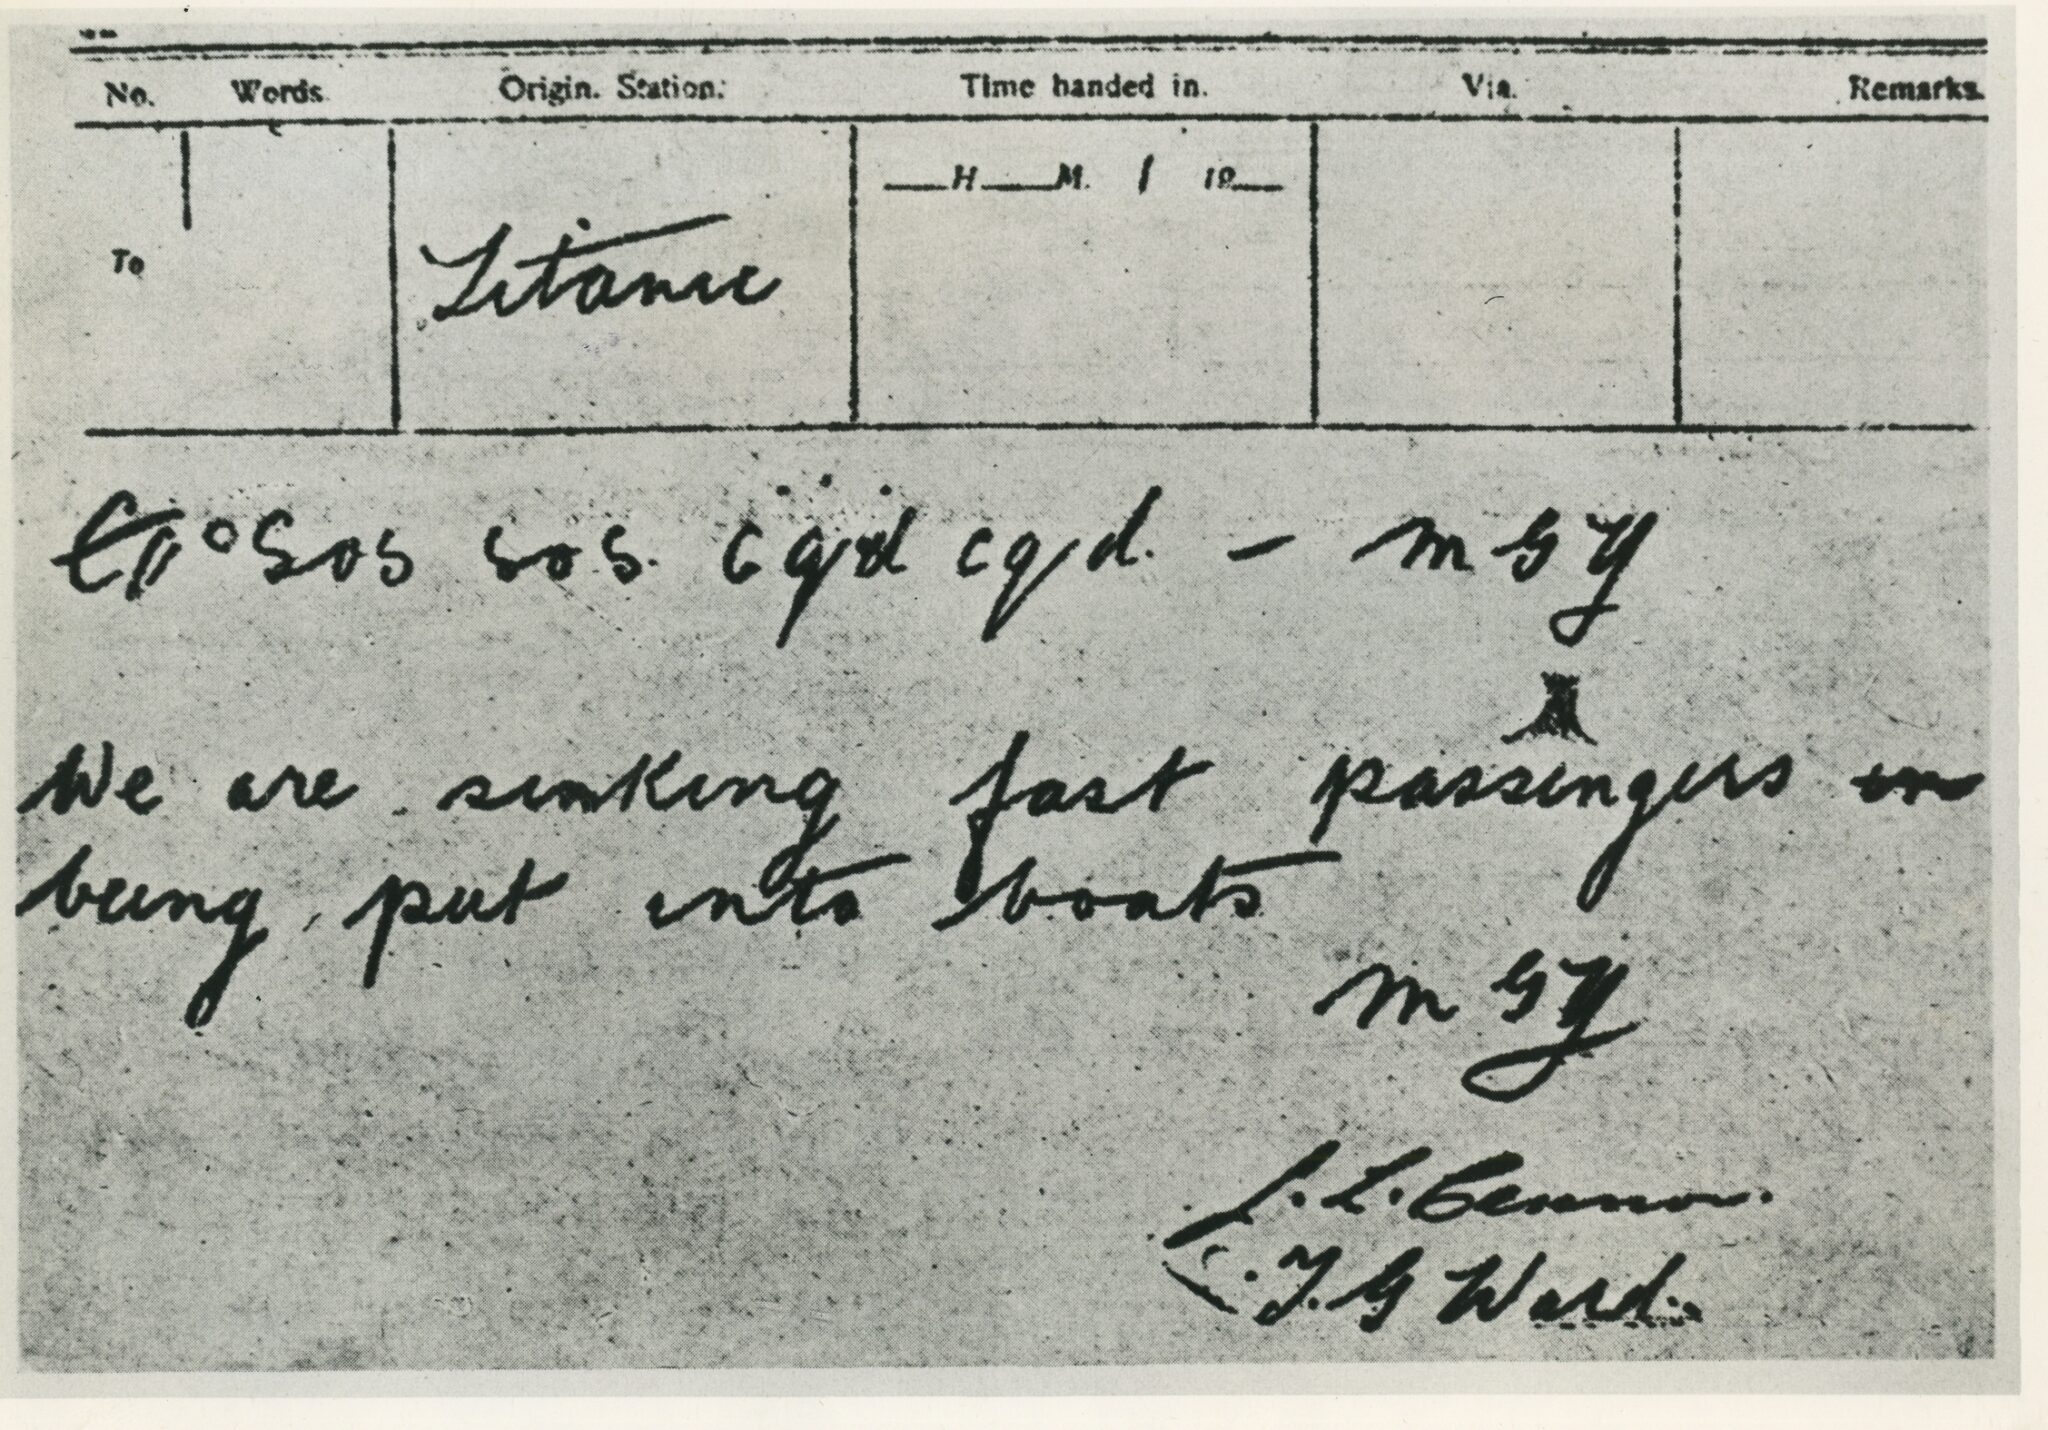 No. Words. Origin. Station. Time handed in. Via. Remarks.
H M. / 19
To
Titanic
Sos sos. cqd cqd. — MGY
We are sinking fast passengers
being put into boats
MGY
T. G Ward.